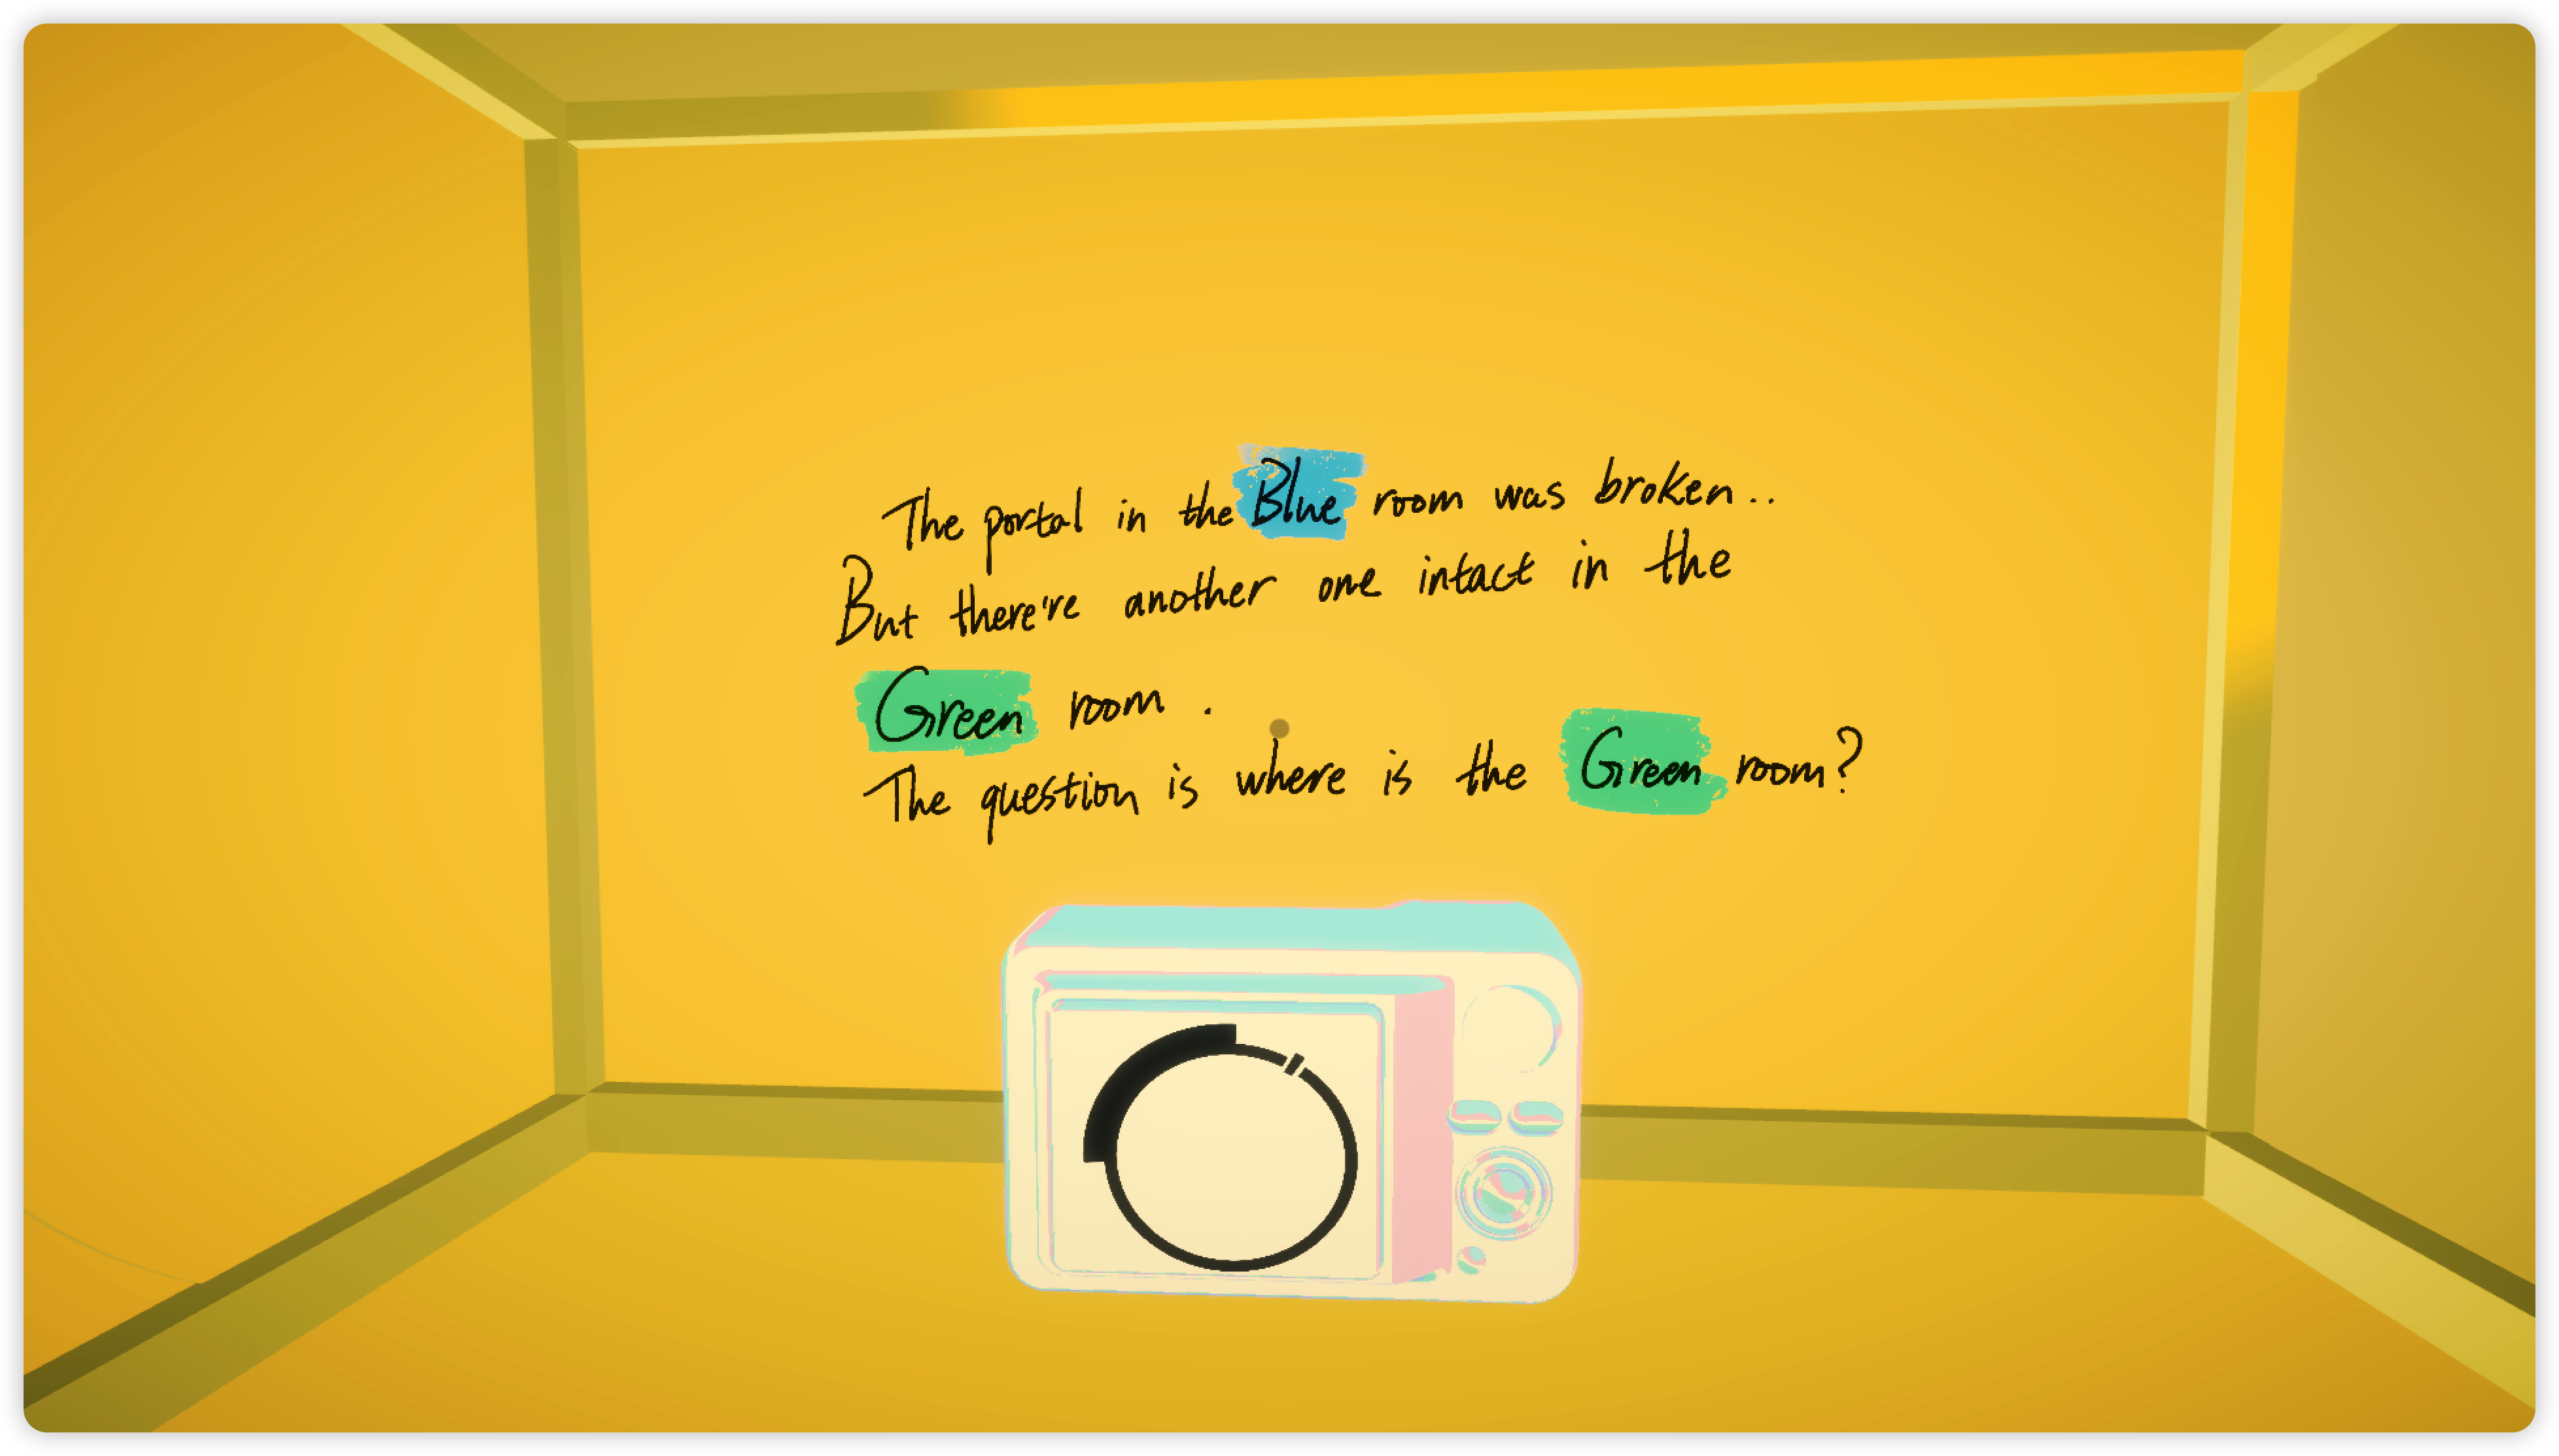 The portal in the Blue room was broken..
But there're another one intact in the
Green room.
The question is where is the Green room?